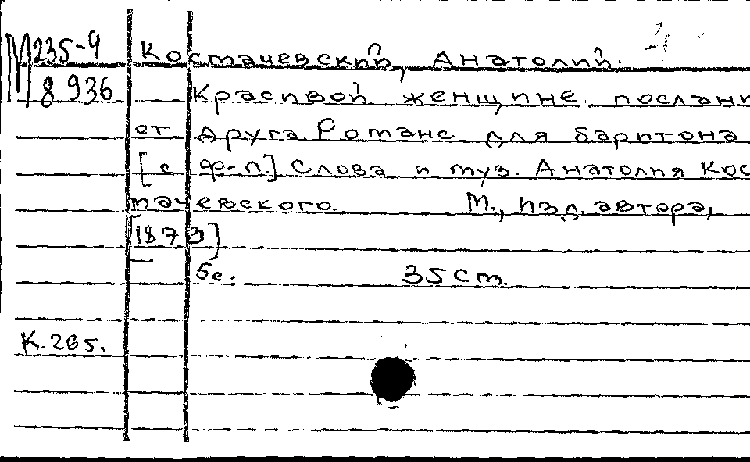 М 235-4 Костачевский, Анатолий.
8 936 Красивой женщине послани
от друга Романс для баритона
[с ф-п.] Слова и муз. Анатолия Кос
тачевского. М., изд. автора,
[1873]
5с. 35 см.
К. 265.